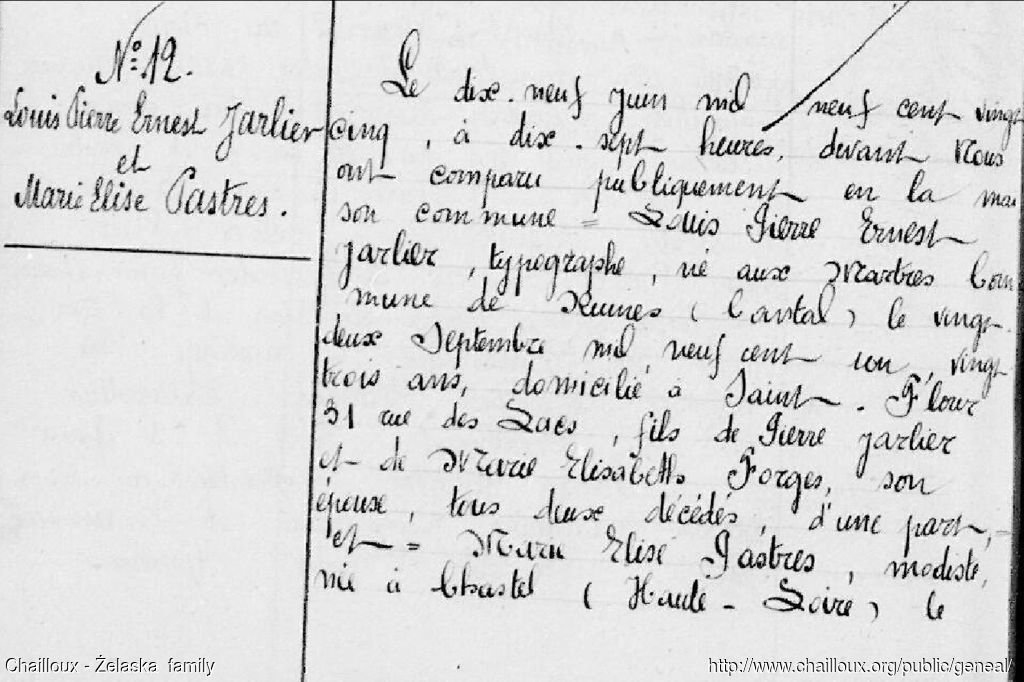 N° 12.
Louis Pierre Ernest Jarlier
et
Marie Elise Pastres.
Le dix-neuf Juin mil neuf cent vingt
cinq, à dix-sept heures, devant Nous
ont comparu publiquement en la mai
son commune = Louis Pierre Ernest
Jarlier, typographe, né aux Martres Com
mune de Ruines (Cantal) le vingt
deux Septembre mil neuf cent un, vingt
trois ans, domicilié à Saint-Flour
31 rue des Lacs, fils de Pierre Jarlier
et de Marie Elisabeth Forges, son
épouse, tous deux décédés, d'une part,
et = Marie Elise Pastres, modiste,
née à Chastel (Haute-Loire) le
Chailloux - Żelaska family
http://www.chailloux.org/public/geneal/